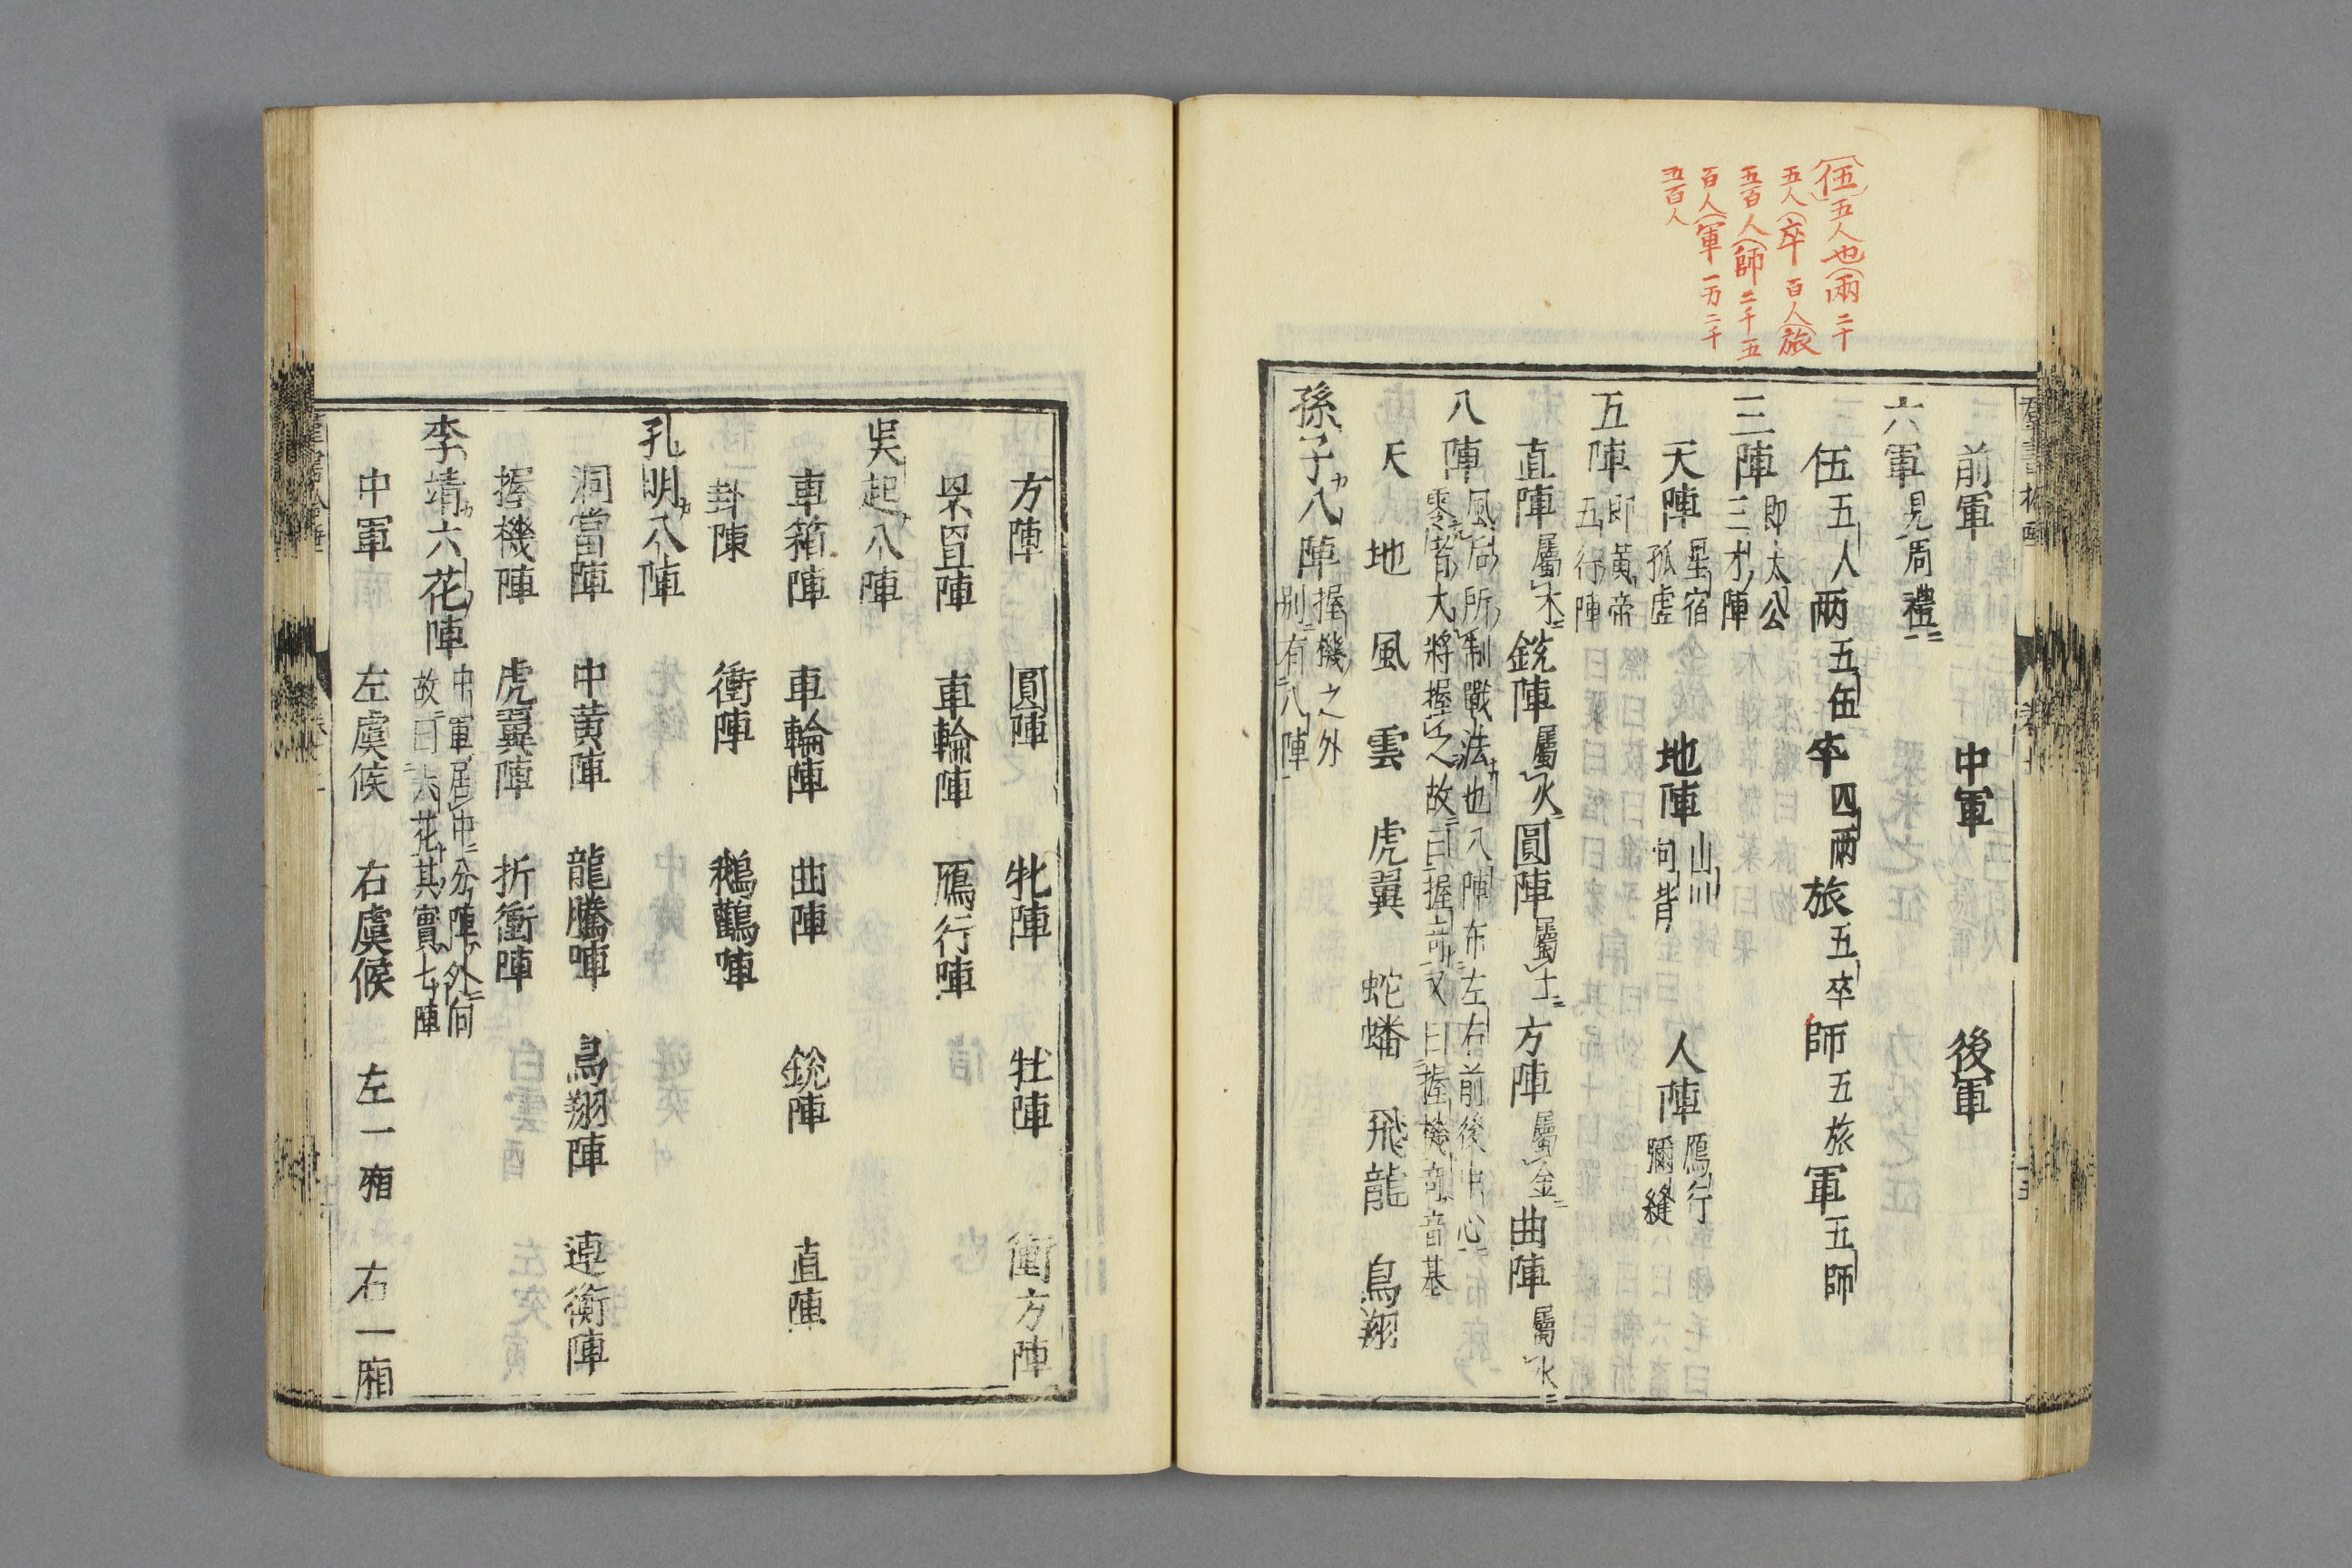 伍五人也兩二十
五人卒百人旅
五百人師二千五
百人軍一万二千
五百人
前軍　中軍　後軍
六軍見周禮
伍五人两五伍卒四兩旅五卒師五旅軍五師
三陣即太公三才陣
天陣星宿孤虛　地陣山川向背　人陣鴈行彌縫
五陣即黄帝五行陣
直陣屬木銳陣屬火圓陣屬土方陣屬金曲陣屬水
八陣風后所制戰法也八陣布左右前後中心
零者大將握之故曰握奇又曰握機奇音基
天　地　風　雲　虎翼　蛇蟠　飛龍　鳥翔
孫子八陣握機之外別有八陣
方陣　圓陣　牝陣　牡陣　衝方陣
罘罝陣　車輪陣　鴈行陣
吳起八陣
車箱陣　車輪陣　曲陣　銳陣　直陣
卦陳　衝陣　鵝鸛陣
孔明八陣
洞當陣　中黄陣　龍騰陣　鳥翔陣　連衡陣
握機陣　虎翼陣　折衝陣
李靖六花陣中軍居中分陣外向故曰六花其實七陣
中軍　左虞候　右虞候　左一廂　右一廂